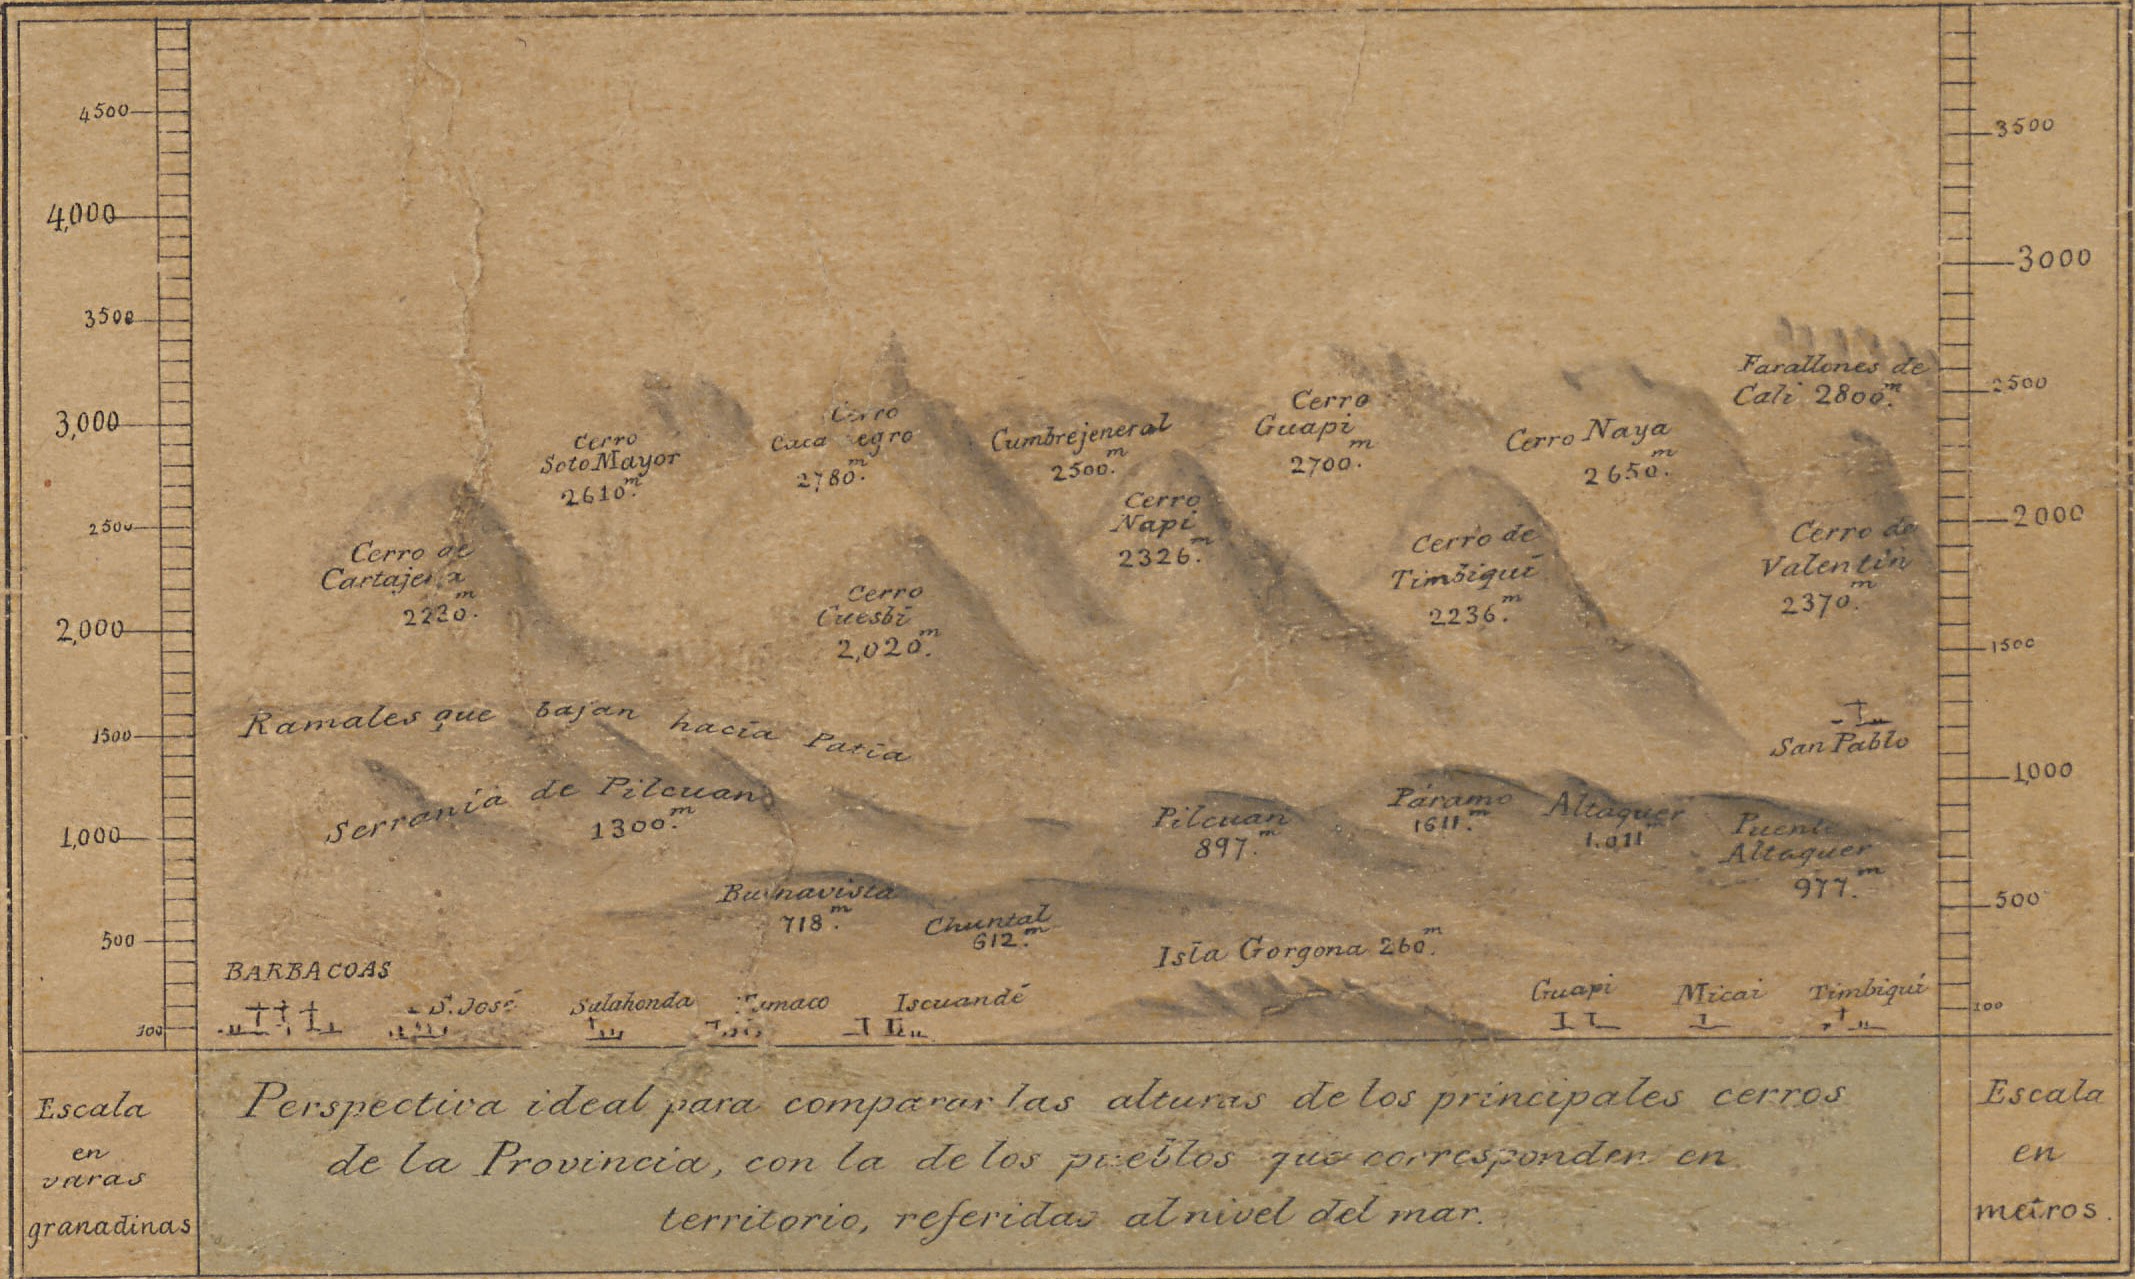 4500
4,000
3500
3,000
2500
2,000
1500
1,000
500
100
3500
3000
2500
2000
1500
1,000
500
100
Farallones de
Cali 2800.m
Cerro
Guapi
2700.m
Cerro
egro
2780.m
Cumbrejeneral
2500.m
Cerro Naya
2650.m
Cerro
Soto Mayor
2610m.
Cerro
Napi
2326.m
Cerro de
Timbiquí
2236.m
Cerro de
Valentin
2370.m
Cerro de
Cartajena
2220.m
Cerro
Cuesbí
2,020.m
Ramales que bajan hacía Patía
San Pablo
Serranía de Pilcuan
1300.m
Pilcuan
897.m
Páramo
1611.m
Altaquer
1.011m
Puente
Altaquer
977.m
Buenavista
718.m
Chuntal
612.m
Isla Gorgona 260.m
BARBACOAS
S. José
Salahonda
Tumaco
Iscuandé
Guapi
Micai
Timbiquí
Escala
en
varas
granadinas
Perspectiva ideal para comparar las alturas de los principales cerros
de la Provincia, con la de los pueblos que corresponden en
territorio, referidas al nivel del mar.
Escala
en
metros.